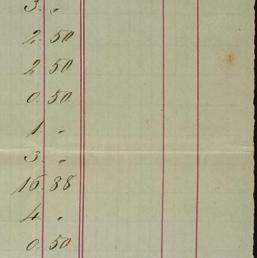 3. "
2. 50
2 50
0. 50
1. "
3. "
16. 88
4. "
0. 50